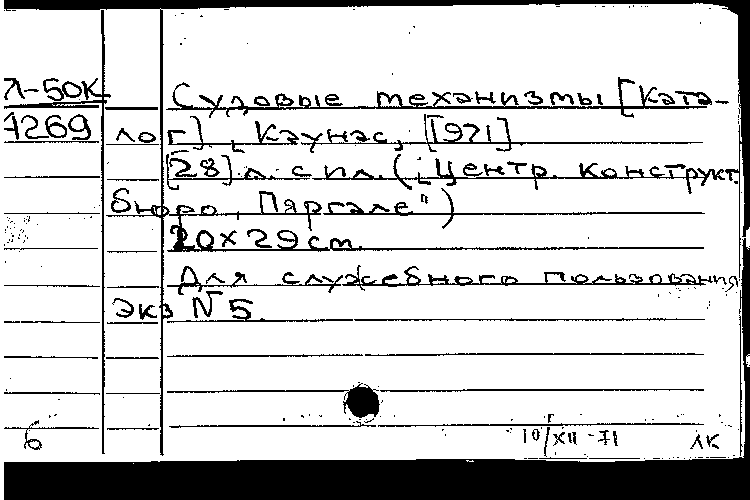 Л-50К Судовые механизмы [Ката-
4269 лог]. Каунас, [1971].
[28] л. с ил. (Центр. конструкт.
бюро „Пяргале")
20×29 см.
Для служебного пользования
Экз № 5.
6 10/XII-71 ЛК